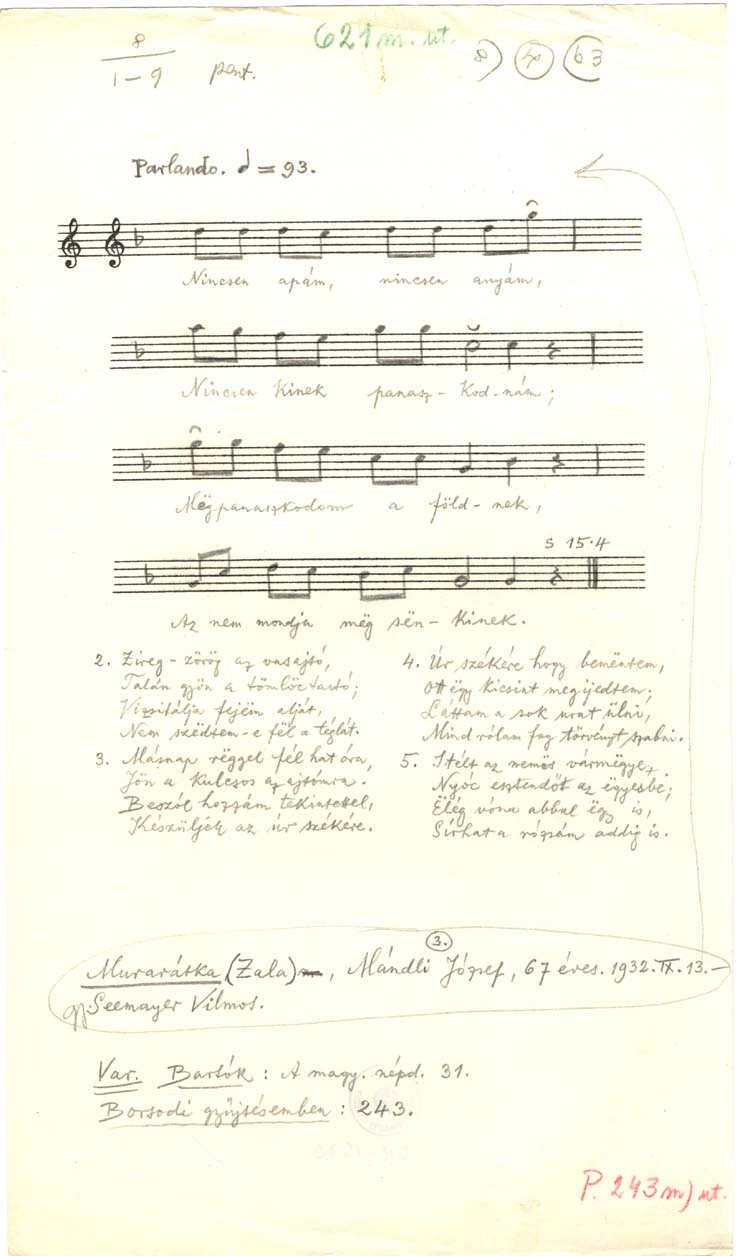 621 m. ut.
8
1-9 pont.
8) 4 63
Parlando. = 93.
Nincsen apám, nincsen anyám,
Nincsen kinek panasz-kod-nám;
Mëgpanaszkodom a föld-nek,
S 15.4
Az nem mondja mëg sën-kinek.
2. Zireg-zörög az vasajtó,
Talán gyön a tömlöctartó;
Vizsitálja fejëin alját,
Nem szëdtem-e fël a téglát.
3. Másnap rëggel fél hat óra,
Jön a kulcsos az ajtómra.
Beszól hozzám tekintettel,
Készüljek az úr székére.
4. Úr székére hogy bemëntem,
Ott ëgy kicsint megijedtem;
Láttam a sok urat ülni,
Mind rólam fog törvényt szabni.
5. Itélt az nemös vármëgye,
Nyóc esztendőt az ëgyesbe;
Elég vóna abbul ëgy is,
Sírhat a rózsám addig is.
3.
Murarátka (Zala), Mándli József, 67 éves. 1932. IX. 13.-
gy. Seemayer Vilmos.
Var. Bartók: A magy. népd. 31.
Borsodi gyűjtésemben: 243.
P. 243 m) ut.